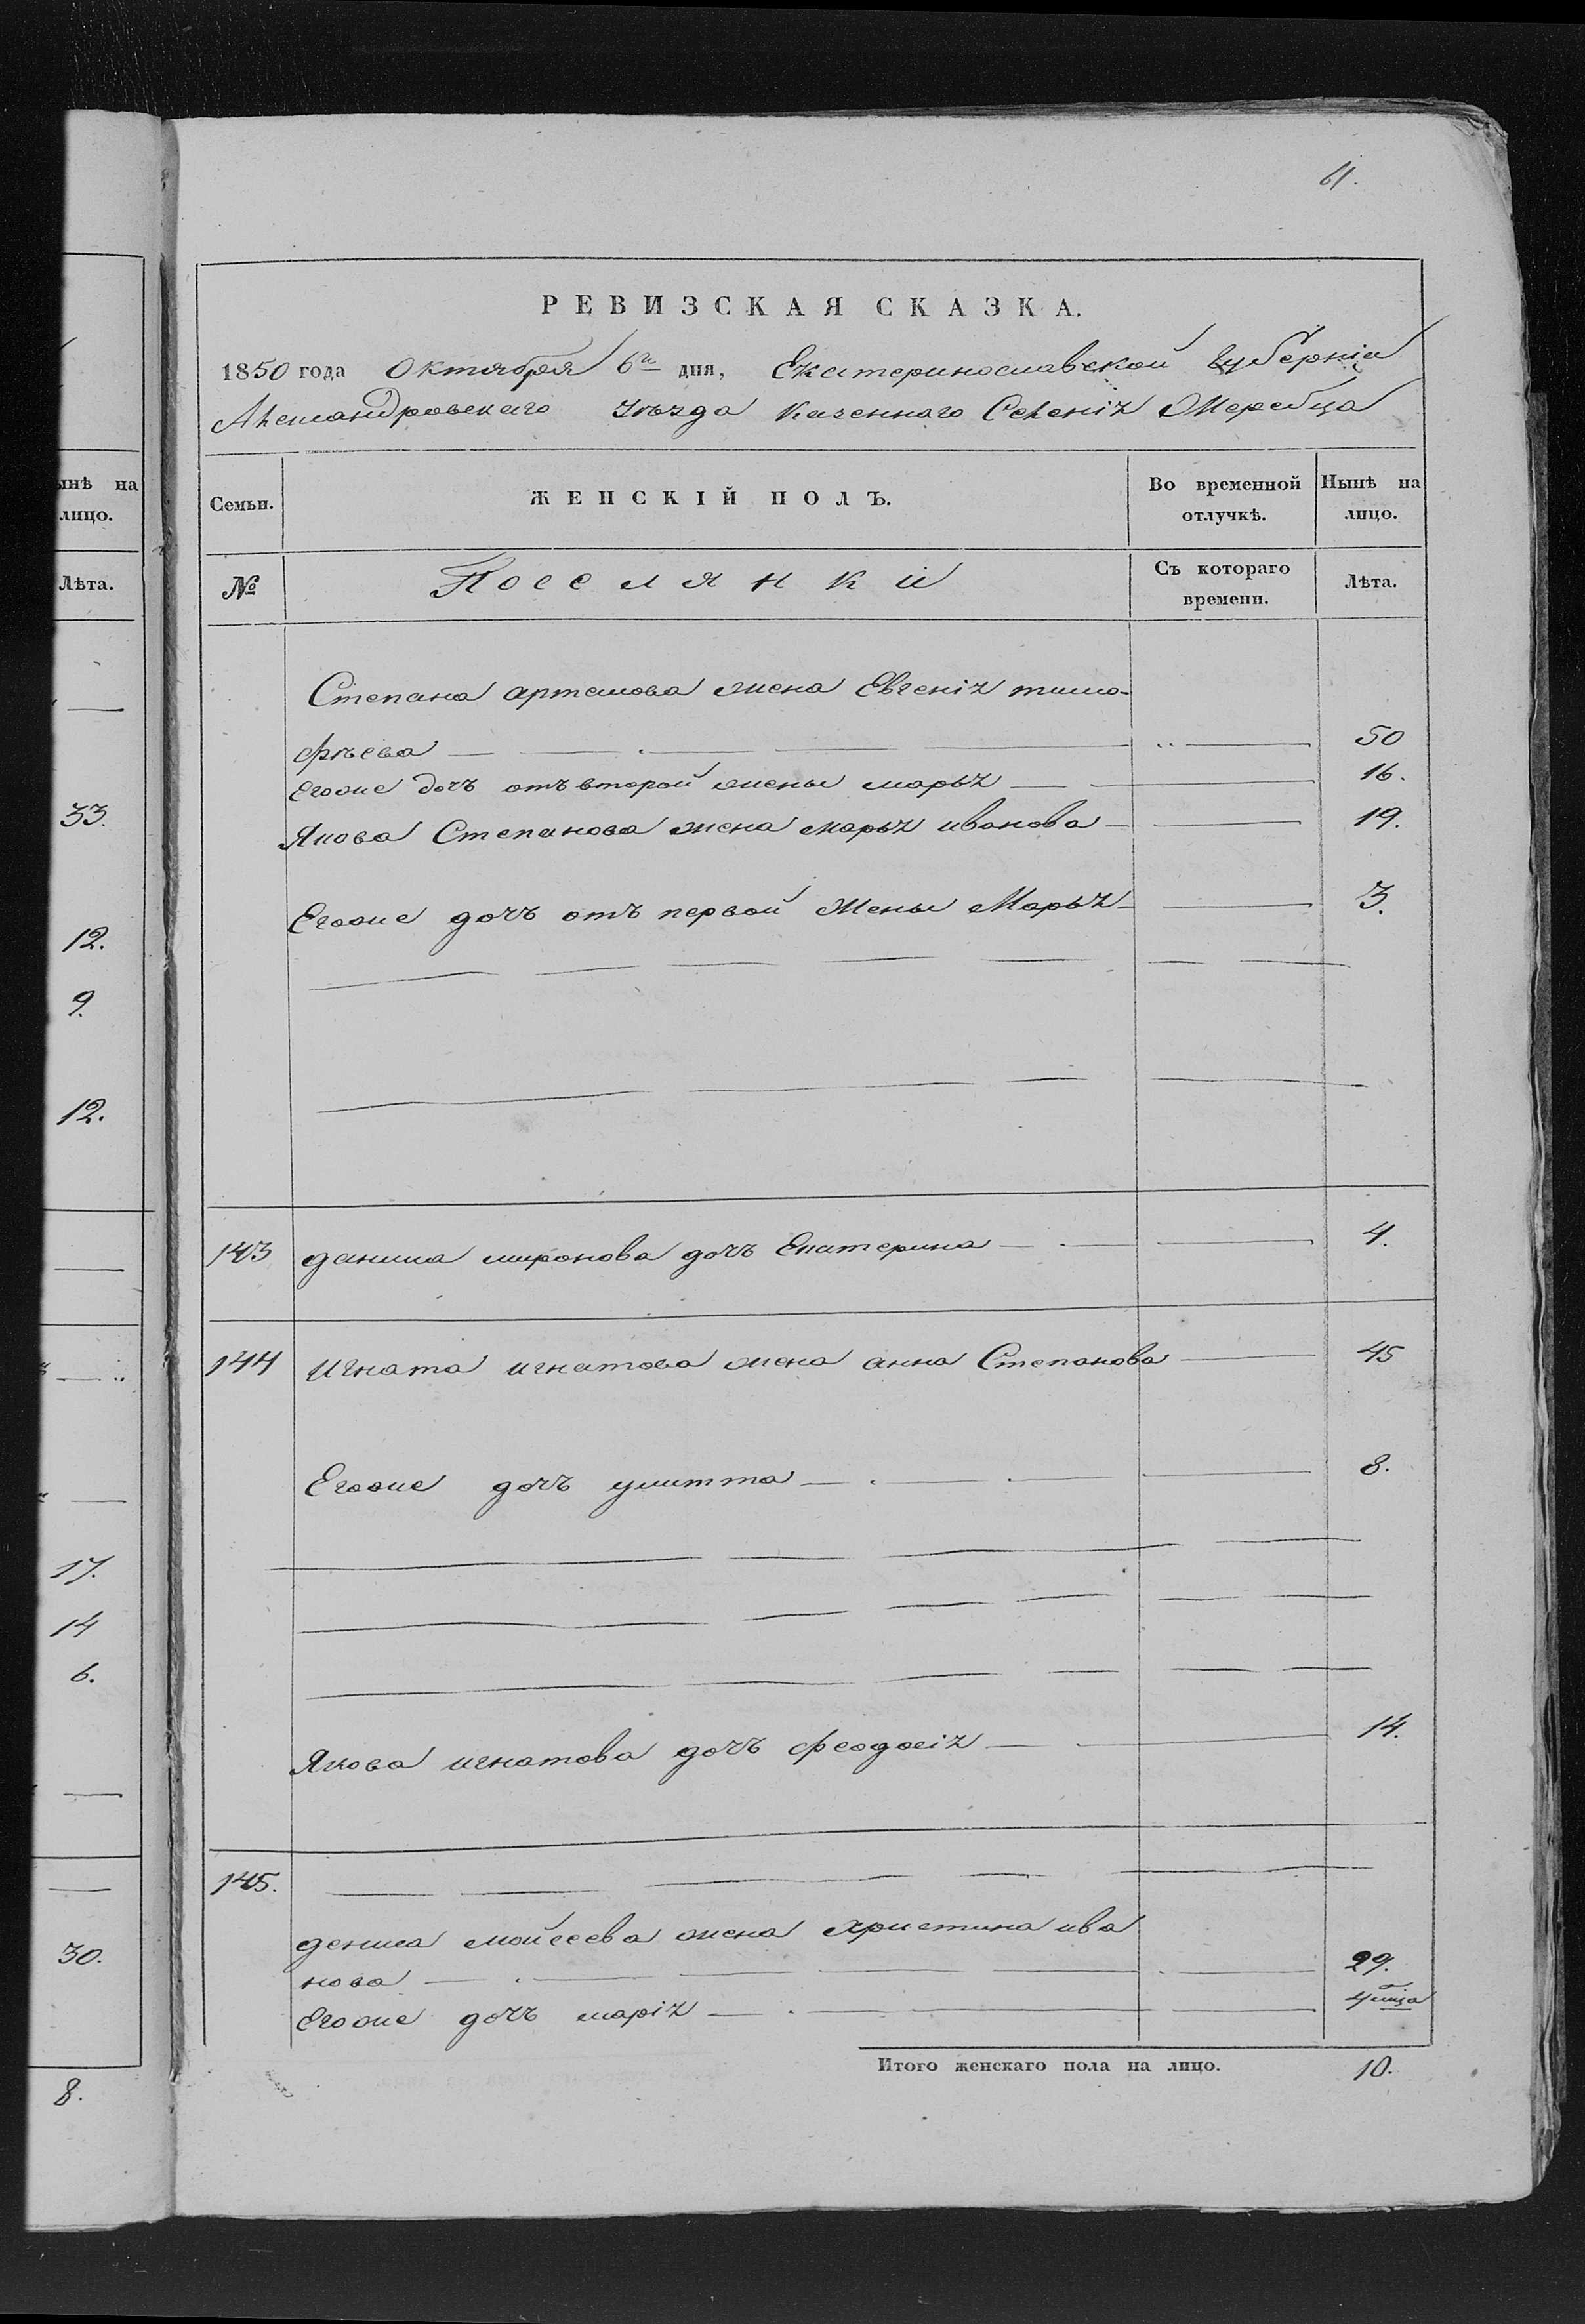 61.
РЕВИЗСКАЯ СКАЗКА.
1850 года Октября 6го дня, Екатеринославской Губерніи
Александровскаго уѣзда Казеннаго Селенія Жеребца
Семьи.
ЖЕНСКІЙ ПОЛЪ.
Во временной отлучкѣ.
Нынѣ на лицо.
№
Поселянки
Съ котораго времени.
Лѣта.
Степана артемова жена Евгенія тимо-
фѣева 50
Егоже дочъ отъ второй жены марья 16.
Якова Степанова жена марья иванова 19.
Егоже дочъ отъ первой Жены Марья 3.
143 данила миронова дочъ Екатерина 4.
144 Игната игнатова жена анна Степанова 45
Егоже дочъ улитта 8.
Якова игнатова дочъ феодосія 14.
145.
дениса мойсеева жена христина ива
нова 29.
Егоже дочъ марія 4 мца
Итого женскаго пола на лицо. 10.
ынѣ на
лицо.
Лѣта.
33.
12.
9.
12.
17.
14
6.
30.
8.